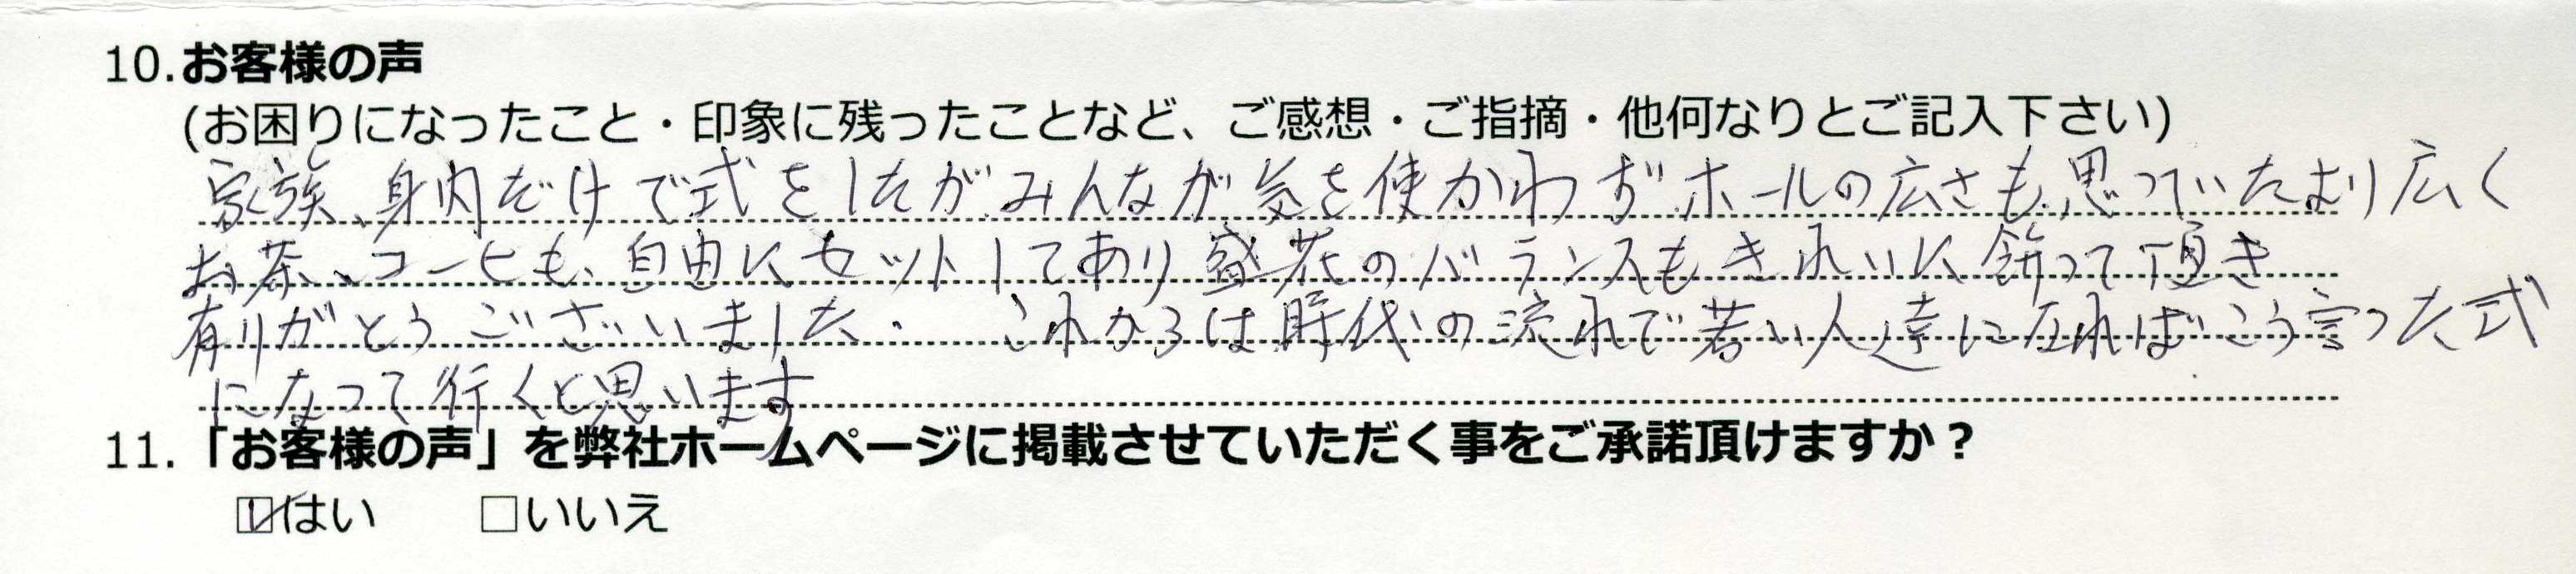 10.お客様の声
(お困りになったこと・印象に残ったことなど、ご感想・ご指摘・他何なりとご記入下さい)
家族、身内だけで式をしたがみんなが気を使かわずホールの広さも思っていたより広く
お茶、コーヒも、自由にセットしてあり盛花のバランスもきれいに飾って頂き
有りがとうございました. これからは時代の流れで若い人達に在ればこう言った式
になって行くと思います
11.「お客様の声」を弊社ホームページに掲載させていただく事をご承諾頂けますか？
☑はい □いいえ